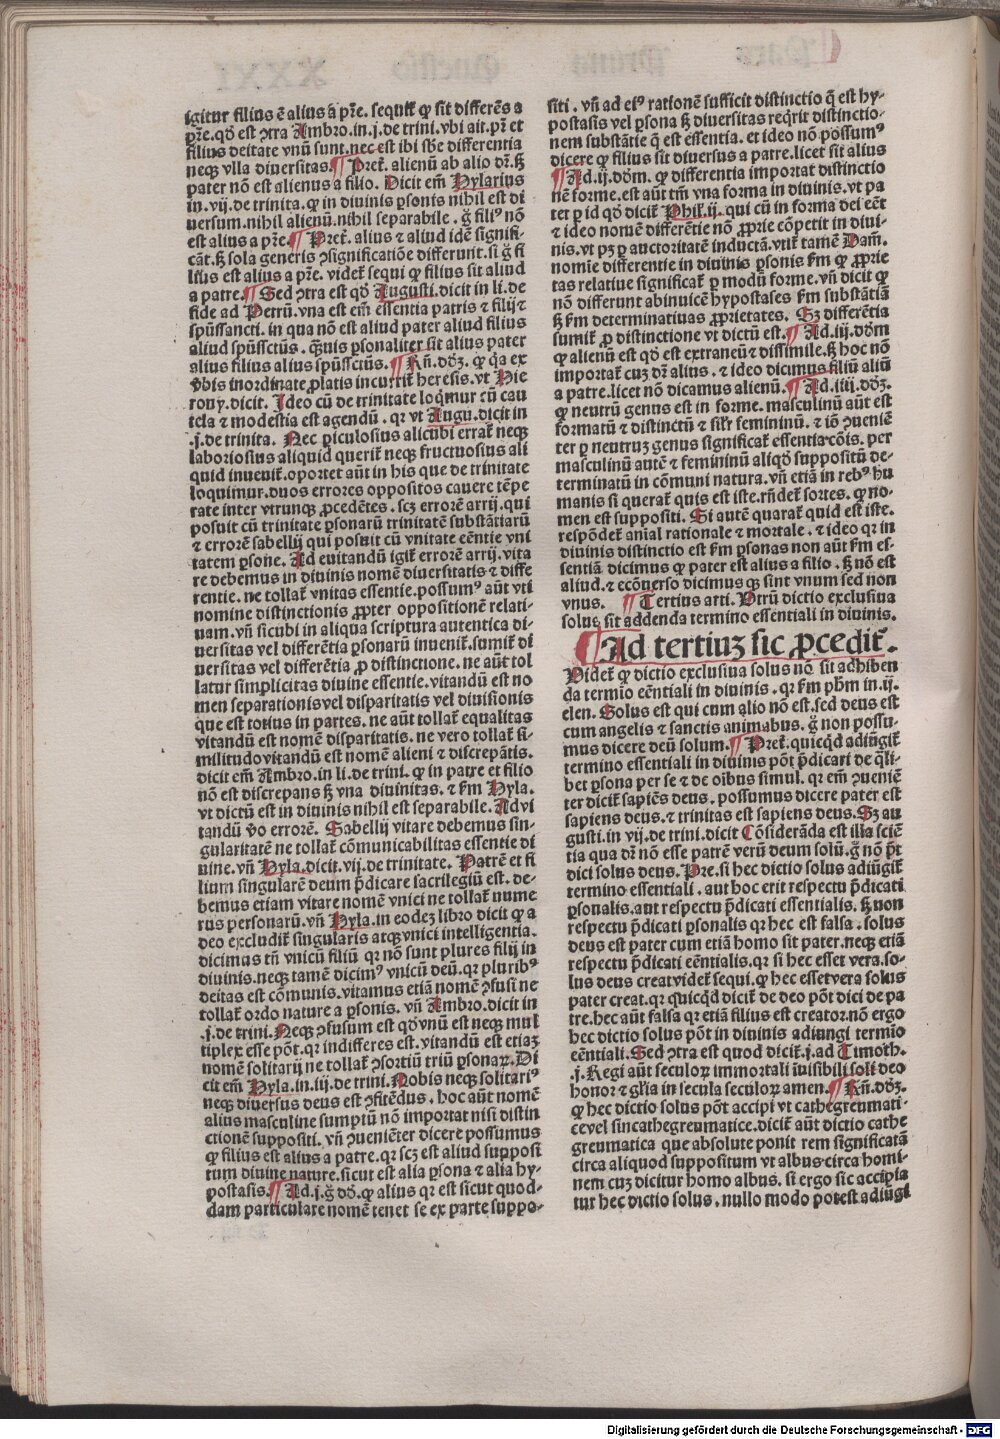 igitur filius ē alius a pr̄e. sequit᷑ ꝙ sit differēs a
pr̄e. qd̄ est ꝯtra Ambro.in.j.de trini.vbi ait.pr̄ et
filius deitate vnū sunt.nec est ibi sb̄e differentia
neqꝫ vlla diuersitas.¶ Pret̄. alienū ab alio dr̄.sꝫ
pater nō est alienus a filio. Dicit em̄ Hylarius
in.vij.de trinita.ꝙ in diuinis ꝑsonis nihil est di
uersum.nihil alienū.nihil separabile. ḡ filiꝰ nō
est alius a pr̄e.¶ Pret̄. alius ⁊ aliud idē signifi-
cāt.sꝫ sola generis ꝯsignificatiōe differunt. si ḡ fi
lius est alius a pr̄e. videt᷑ sequi ꝙ filius sit aliud
a patre.¶ Sed ꝯtra est qd̄ Augusti.dicit in li. de
fide ad Petrū.vna est em̄ essentia patris ⁊ filij ⁊
spūssancti. in qua nō est aliud pater aliud filius
aliud spūssctūs. qꝫuis ꝑsonaliter sit alius pater
alius filius alius spūssctūs. ¶ Rn̄. dd̄ꝫ. ꝙ q̄a ex
v̄bis inordinate ꝓlatis incurrit᷑ heresis.vt Hie
rony.dicit. Ideo cū de trinitate loq̄mur cū cau
tela ⁊ modestia est agendū . qr vt Augu.dicit in
.j.de trinita. Nec ꝑiculosius alicubi errat᷑ neqꝫ
laboriosius aliquid querit᷑ neqꝫ fructuosius ali
quid inuenit᷑.oportet aūt in his que de trinitate
loquimur.duos errores oppositos cauere tēpe
rate inter vtrunqꝫ ꝓcedētes. scꝫ errorē arrij.qui
posuit cū trinitate ꝑsonarū trinitatē substātiarū
⁊ errorē sabellij qui posuit cū vnitate eēntie vni
tatem ꝑsone. Ad euitandū igit᷑ errorē arrij.vita
re debemus in diuinis nomē diuersitatis ⁊ diffe
rentie. ne tollat᷑ vnitas essentie.possumꝰ aūt vti
nomine distinctionis ꝓpter oppositionē relati-
uam.vn̄ sicubi in aliqua scriptura autentica di
uersitas vel differētia ꝑsonarū inuenit᷑.sumit᷑ di
uersitas vel differētia ꝓ distinctione. ne aūt tol
latur simplicitas diuine essentie.vitandū est no
men separationis vel disparitatis vel diuisionis
que est totius in partes. ne aūt tollat᷑ equalitas
vitandū est nomē disparitatis. ne vero tollat᷑ si-
militudo vitandū est nomē alieni ⁊ discrepātis.
dicit em̄ Ambro.in li.de trini. ꝙ in patre et filio
nō est discrepans sꝫ vna diuinitas. ⁊ fm̄ Hyla.
vt dictū est in diuinis nihil est separabile. Ad vi
tandū v̄o errorē. Sabellij vitare debemus sin-
gularitatē ne tollat᷑ cōmunicabilitas essentie di
uine. vn̄ Hyla.dicit.vij.de trinitate. Patrē et fi
lium singularē deum p̄dicare sacrilegiū est. de-
bemus etiam vitare nomē vnici ne tollat᷑ nume
rus personarū.vn̄ Hyla.in eodeꝫ libro dicit ꝙ a
deo excludit᷑ singularis atqꝫ vnici intelligentia.
dicimus tn̄ vnicū filiū qr nō sunt plures filij in
diuinis.neqꝫ tamē dicimꝰ vnicū deū.qr pluribꝰ
deitas est cōmunis.vitamus etiā nomē ꝯfusi ne
tollat᷑ ordo nature a ꝑsonis. vn̄ Ambro.dicit in
.j.de trini.Neqꝫ ꝯfusum est qd̄ vnū est neqꝫ mul
tiplex esse pōt.qr indifferes est.vitandū est etiaꝫ
nomē solitarij ne tollat᷑ ꝯsortiū triū ꝑsonaꝝ.Di
cit em̄ Hyla.in.iij.de trini. Nobis neqꝫ solitariꝰ
neqꝫ diuersus deus est ꝯfitēdus. hoc aūt nomē
alius masculine sumptū nō importat nisi distin
ctionē suppositi. vn̄ ꝯueniēter dicere possumus
ꝙ filius est alius a patre.qr scꝫ est aliud supposi
tum diuine nature.sicut est alia ꝑsona ⁊ alia hy-
postasis.¶ Ad.j.ḡ dd̄. ꝙ alius qr est sicut quod-
dam particulare nomē tenet se ex parte suppo-
siti. vn̄ ad eiꝰ rationē sufficit distinctio q̄ est hy-
postasis vel ꝑsona sꝫ diuersitas req̄rit distinctio-
nem substātie q̄ est essentia. et ideo nō possumꝰ
dicere ꝙ filius sit diuersus a patre.licet sit alius
¶ Ad.ij.dōm. ꝙ differentia importat distinctio
nē forme.est aūt tm̄ vna forma in diuinis.vt pa
tet ꝑ id qd̄ dicit᷑ Phil̄.ij. qui cū in forma dei eēt
⁊ ideo nomē differētie nō ꝓprie cōpetit in diui-
nis.vt pꝫ ꝑ auctoritatē inductā.vtit᷑ tamē Dam̄.
nomie differentie in diuinis ꝑsonis fm̄ ꝙ ꝓprie
tas relatiue significat᷑ ꝑ modū forme.vn̄ dicit ꝙ
nō differunt abinuicē hypostases fm̄ substātiā
sꝫ fm̄ determinatiuas ꝓprietates. Sꝫ differētia
sumit᷑ ꝓ distinctione vt dictū est.¶ Ad.iij.dōm
ꝙ alienū est qd̄ est extraneū ⁊ dissimile.sꝫ hoc nō
importat᷑ cuꝫ dr̄ alius. ⁊ ideo dicimus filiū aliū
a patre.licet nō dicamus alienū.¶ Ad.iiij.dōꝫ.
ꝙ neutrū genus est in forme. masculinū aūt est
formatū ⁊ distinctū ⁊ silr̄ femininū. ⁊ iō ꝯueniē
ter ꝑ neutruꝫ genus significat᷑ essentia cōis. per
masculinū autē ⁊ femininū aliqd̄ suppositū de-
terminatū in cōmuni natura.vn̄ etiā in rebꝰ hu
manis si querat᷑ quis est iste.rn̄det᷑ sortes. ꝙ no-
men est suppositi. Si autē quarat᷑ quid est iste.
respōdet᷑ anial rationale ⁊ mortale. ⁊ ideo qr in
diuinis distinctio est fm̄ ꝑsonas non aūt fm̄ es-
sentiā dicimus ꝙ pater est alius a filio. sꝫ nō est
aliud.⁊ ecōuerso dicimus qꝫ sint vnum sed non
vnus. ¶ Tertius arti. Vtrū dictio exclusiua
solus sit addenda termino essentiali in diuinis.
¶ Ad tertiuꝫ sic ꝓcedit᷑.
Videt᷑ ꝙ dictio exclusiua solus nō sit adhiben
da termio eēntiali in diuinis . qr fm̄ ph̄m in.ij.
elen. Solus est qui cum alio nō est.sed deus est
cum angelis ⁊ sanctis animabus. ḡ non possu-
mus dicere deū solum.¶ Pret̄.quicqd̄ adiūgit᷑
termino essentiali in diuinis pōt p̄dicari de q̄li-
bet ꝑsona per se ⁊ de oībus simul. qr em̄ ꝯueniē
ter dicit᷑ sapiēs deus. possumus dicere pater est
sapiens deus.⁊ trinitas est sapiens deus.Sꝫ au
gusti.in.vij.de trini.dicit Cōsiderāda est illa sciē
tia qua dr̄ nō esse patrē verū deum solū.ḡ nō pōt
dici solus deus.Pre.si hec dictio solus adiūgit᷑
termino essentiali . aut hoc erit respectu p̄dicati
ꝑsonalis.aut respectu p̄dicati essentialis. sꝫ non
respectu p̄dicati ꝑsonalis qr hec est falsa. solus
deus est pater cum etiā homo sit pater.neqꝫ etiā
respectu p̄dicati eēntialis.qr si hec esset vera.so-
lus deus creat videt᷑ sequi.ꝙ hec esset vera solus
pater creat.qr quicqd̄ dicit᷑ de deo pōt dici de pa
tre.hec aūt falsa qr etiā filius est creator.nō ergo
hec dictio solus pōt in diuinis adiungi termio
eēntiali.Sed ꝯtra est quod dicit᷑.j.ad Timoth.
.j.Regi aūt seculoꝝ immortali īuisibili soli deo
honor ⁊ gl̄ia in secula seculoꝝ amen.¶ Rn̄.dōꝫ.
ꝙ hec dictio solus pōt accipi vt cathegreumati-
ce vel sincathegreumatice.dicit᷑ aūt dictio cathe
greumatica que absolute ponit rem significatā
circa aliquod suppositum vt albus circa homi-
nem cuꝫ dicitur homo albus. si ergo sic accipia
tur hec dictio solus. nullo modo potest adiūgi
Digitalisierung gefördert durch die Deutsche Forschungsgemeinschaft - DFG